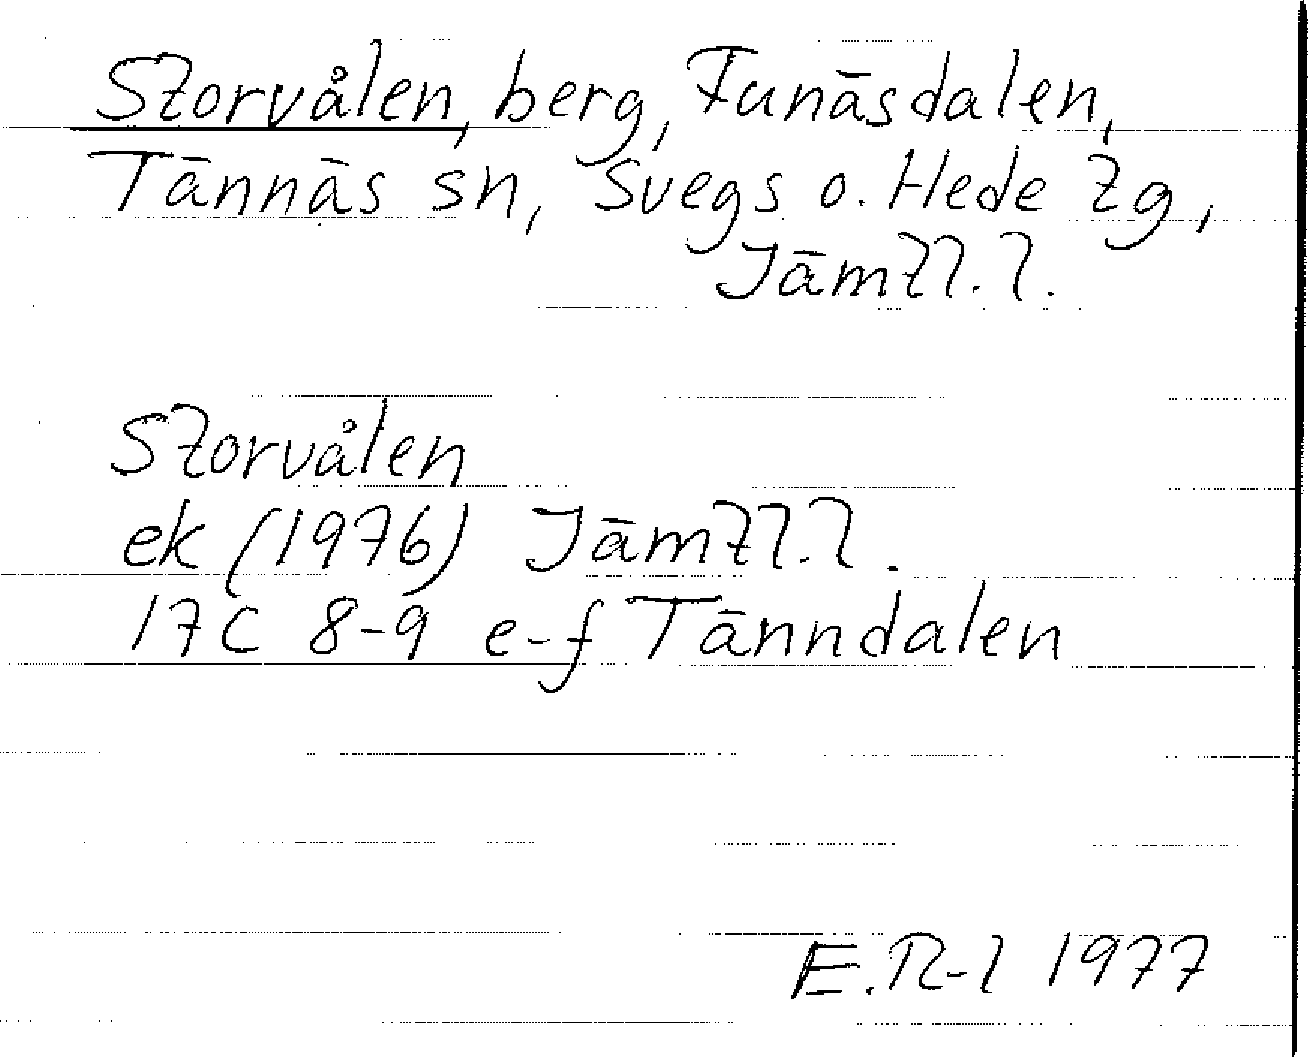 Storvålen, berg, Funäsdalen,
Tännäs sn, Svegs o. Hede tg,
Jämtl. l.
Storvålen
ek (1976) Jämtl. l.
17C 8-9 e-f Tänndalen
E.R-l 1977